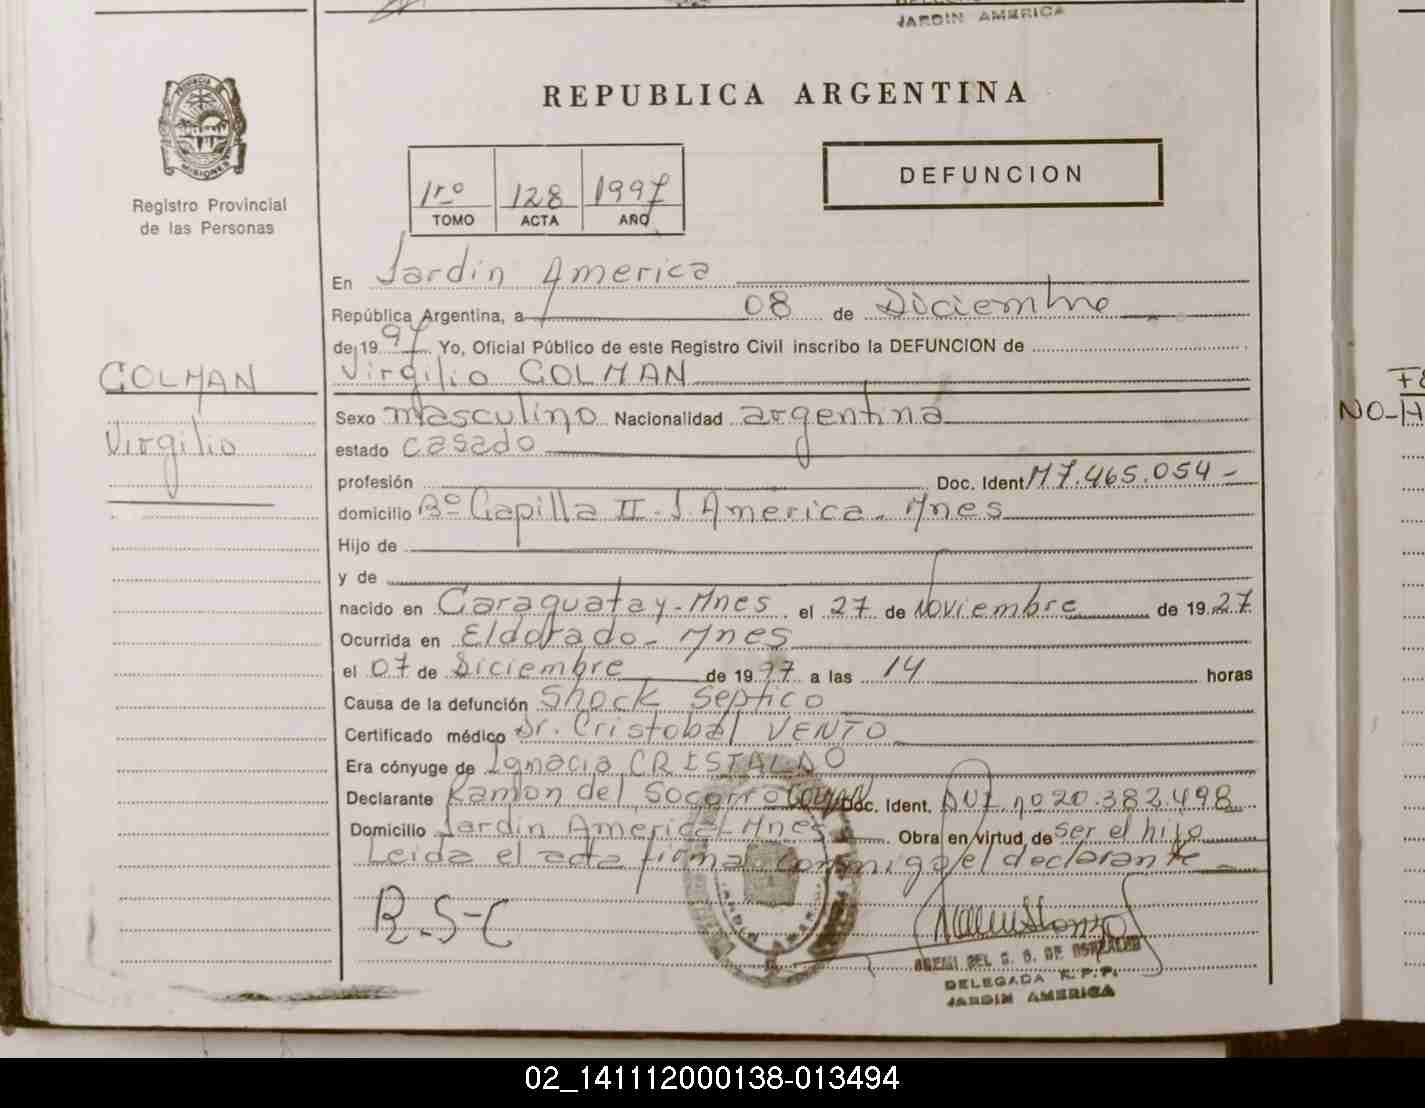 JARDIN AMERICA
REPUBLICA ARGENTINA
PROVINCIA DE
MISIONES
Registro Provincial
de las Personas
1ro 128 1997
TOMO ACTA AÑO
DEFUNCION
En Jardin America
República Argentina, a 08 de Diciembre
de 19 97 Yo, Oficial Público de este Registro Civil inscribo la DEFUNCION de
Virgilio COLMAN
COLMAN
Virgilio
Sexo masculino Nacionalidad argentina
estado casado
profesión Doc. Ident M 7.465.054-
domicilio Bº Capilla II - J. America - Mnes
Hijo de
y de
nacido en Caraguatay - Mnes el 27 de Noviembre de 19 27
Ocurrida en Eldorado - Mnes
el 07 de Diciembre de 19 97 a las 14 horas
Causa de la defunción Shock Septico
Certificado médico Dr. Cristobal VENTO
Era cónyuge de Ignacia CRISTALDO
Declarante Ramon del Socorro Colman Doc. Ident. DNI nº 20.383.498
Domicilio Jardin America - Mnes Obra en virtud de ser el hijo
Leida el acta firma conmigo el declarante
R.S-C
DELEGADA R.P.P.
JARDIN AMERICA
NO-H
02_141112000138-013494